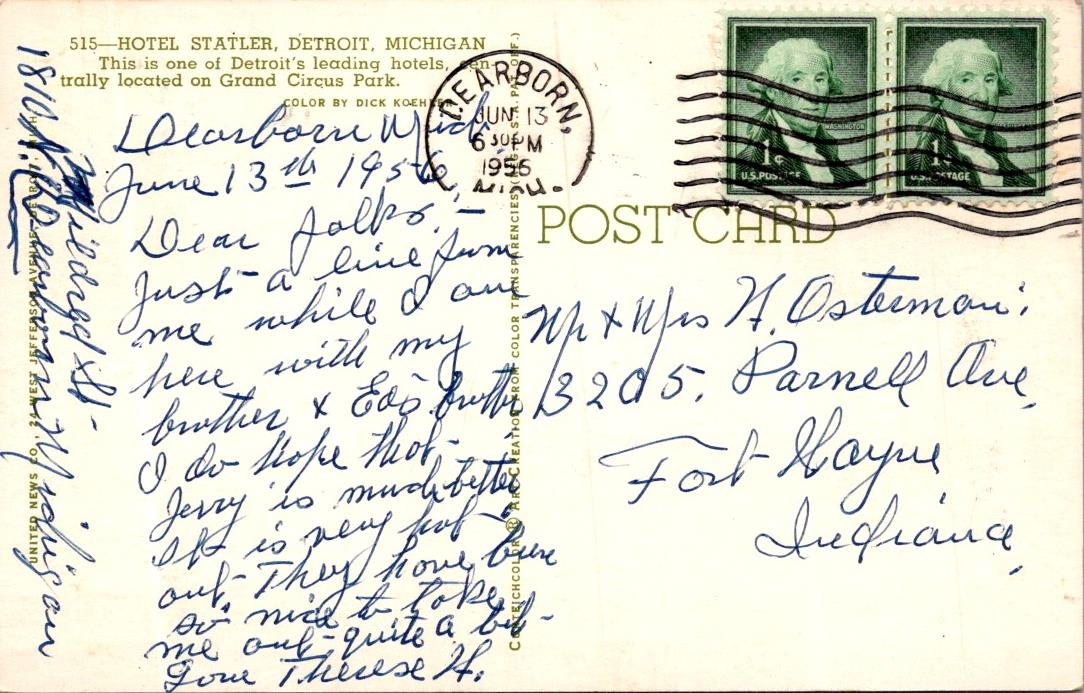 515—HOTEL STATLER, DETROIT, MICHIGAN
This is one of Detroit's leading hotels, cen-
trally located on Grand Circus Park.
COLOR BY DICK KOEHLER
Dearborn Mich
June 13th 1956
Dear folks, —
Just a line from
me while I am
here with my
brother & Ed's brother
I do hope that
Jerry is much better
It is very hot
out. They have been
so nice to take
me out quite a bit-
Love Therese H.
Mildred St-
Dearborn Michigan
UNITED NEWS CO., 24 WEST JEFFERSON AVENUE, DETROIT,
CURTEICHCOLOR ® ART CREATION FROM COLOR TRANSPARENCIES
DEARBORN,
JUN 13
6 30 PM
1956
MICH.
WASHINGTON
1¢
U.S. POSTAGE
1¢
U.S. POSTAGE
POST CARD
Mr & Mrs H. Osterman.
3205. Parnell Ave,
Fort Wayne
Indiana,